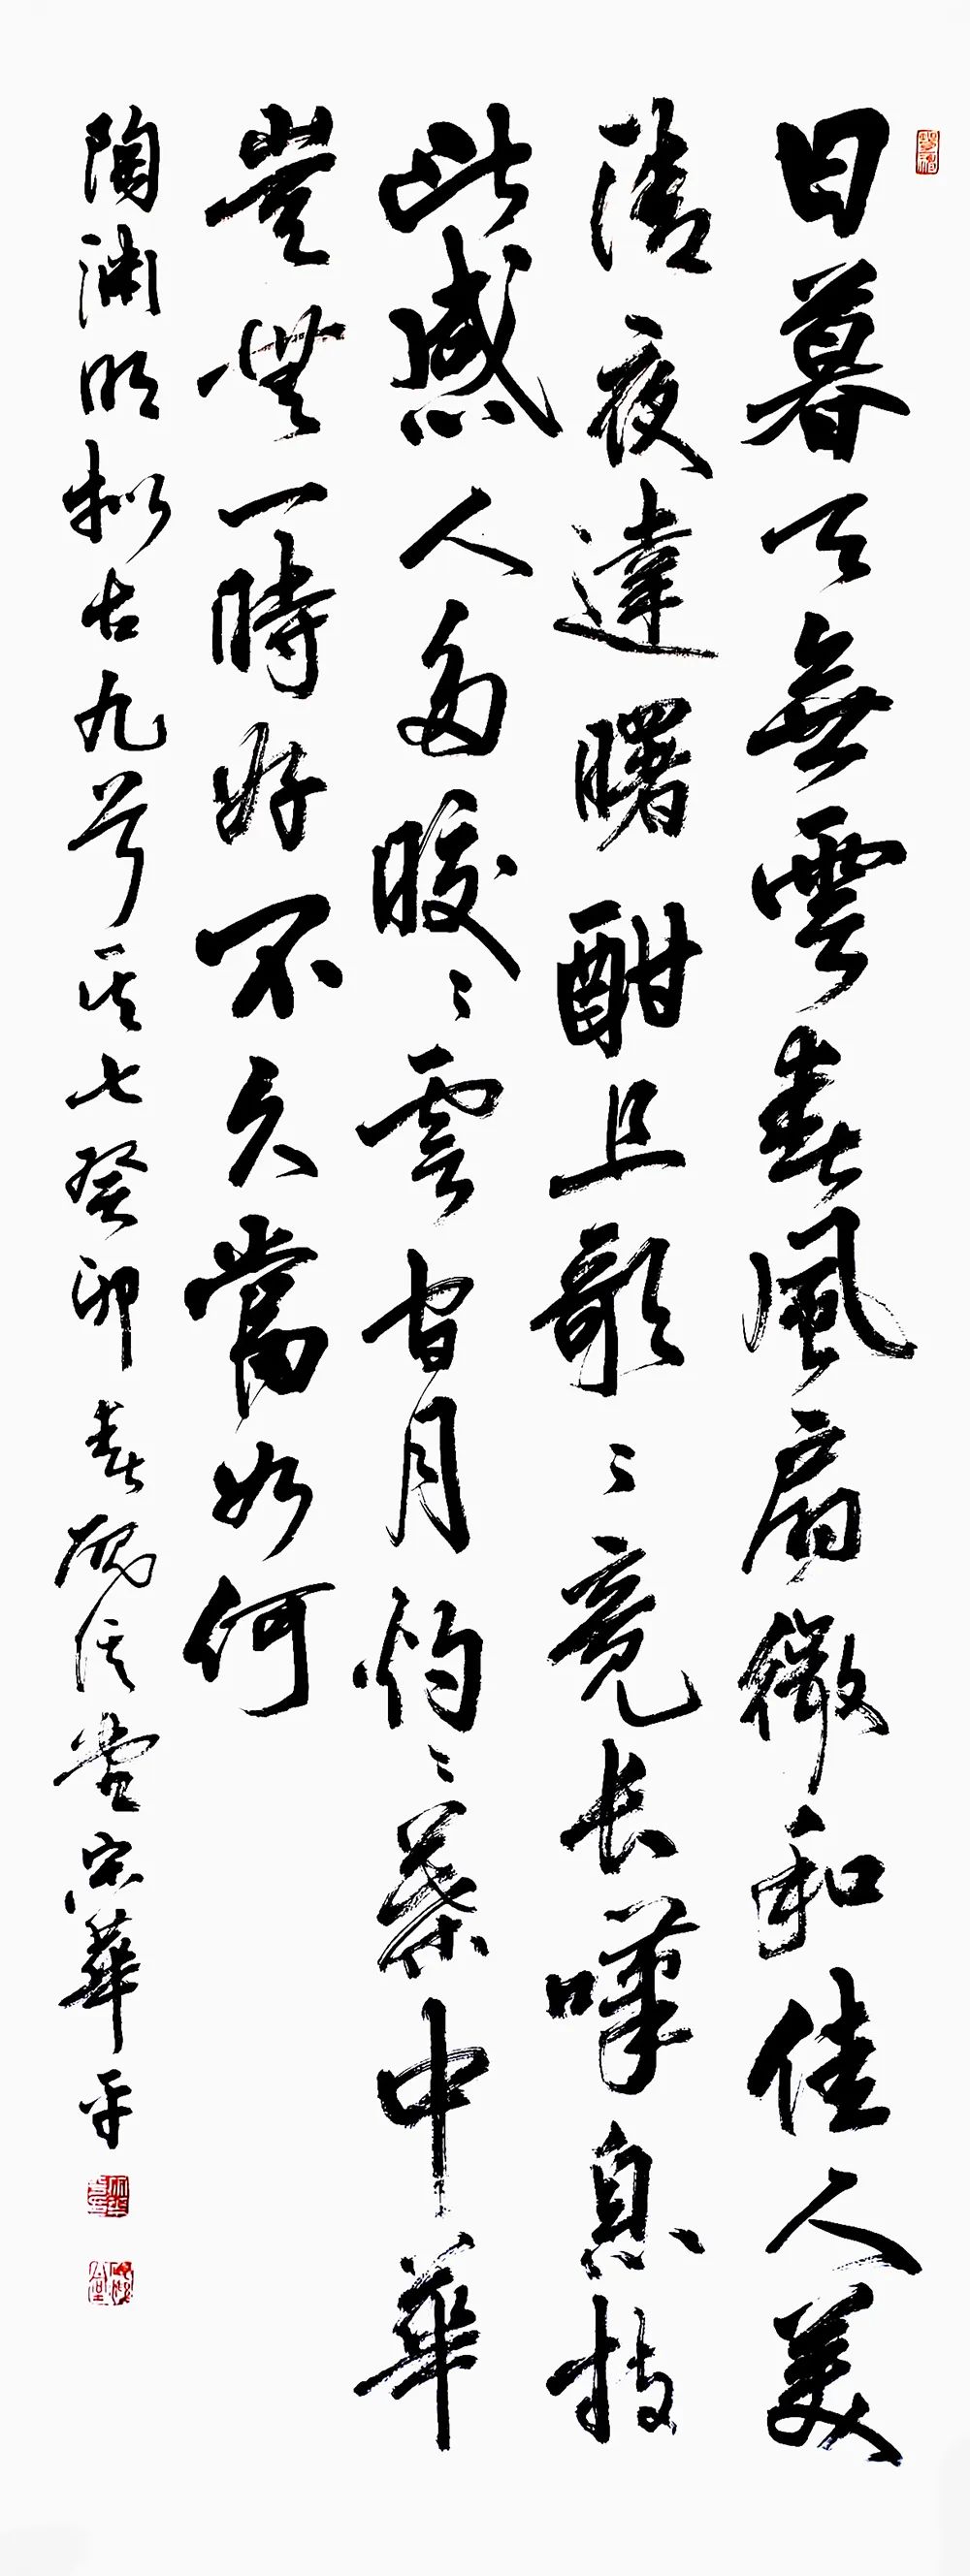 日暮天無雲春風扇微和佳人美
清夜達曙酣且歌〻竟长嘆息持
此感人多皎〻雲间月灼〻葉中華
豈無一時好不久當如何
陶渊明拟古九首其七癸卯春砚溪堂宋華平